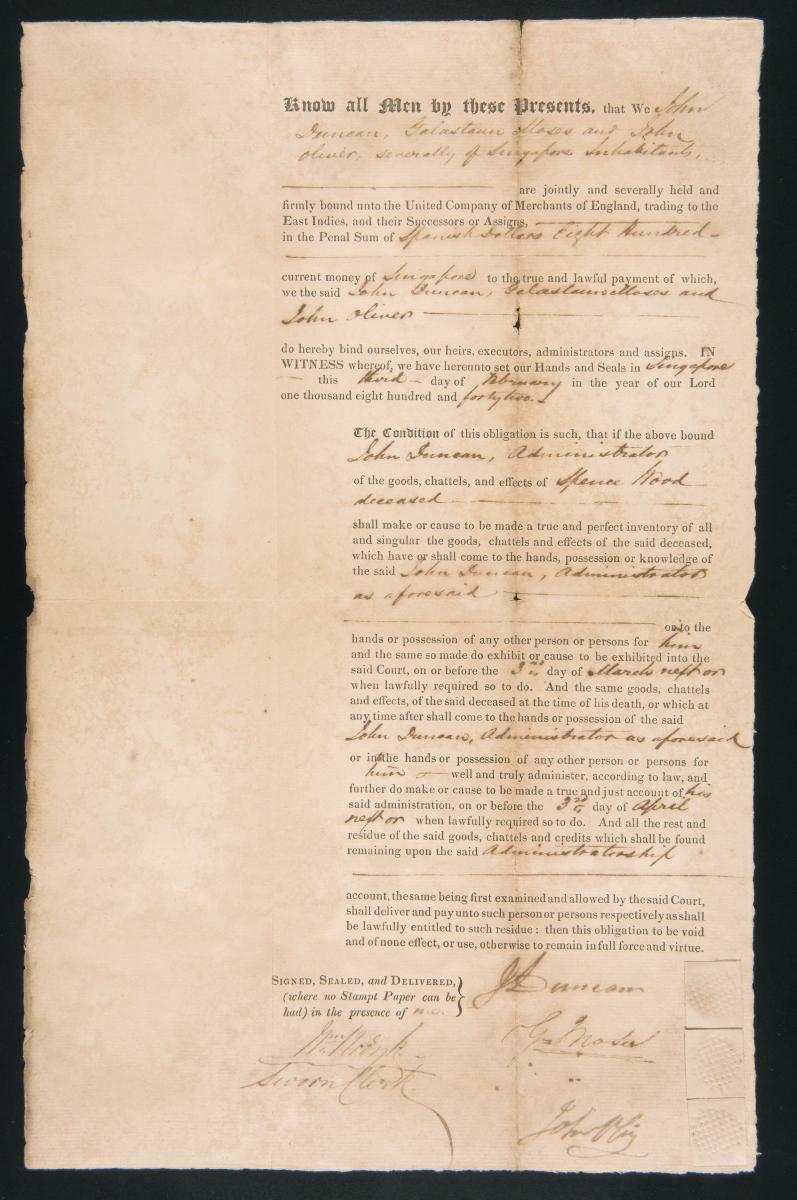 Know all Men by these Presents, that We John
Duncan, Galastaun Moses and John
Oliver, severally of Singapore Inhabitants,
are jointly and severally held and
firmly bound unto the United Company of Merchants of England, trading to the
East Indies, and their Successors or Assigns,
in the Penal Sum of Spanish Dollars Eight Hundred
current money of Singapore to the true and lawful payment of which,
we the said John Duncan, Galastaun Moses and
John Oliver
do hereby bind ourselves, our heirs, executors, administrators and assigns. IN
WITNESS whereof, we have hereunto set our Hands and Seals in Singapore
this third day of February in the year of our Lord
one thousand eight hundred and forty two.
The Condition of this obligation is such, that if the above bound
John Duncan, Administrator
of the goods, chattels, and effects of Spence Wood
deceased
shall make or cause to be made a true and perfect inventory of all
and singular the goods, chattels and effects of the said deceased,
which have or shall come to the hands, possession or knowledge of
the said John Duncan, Administrator
as aforesaid
or into the
hands or possession of any other person or persons for him
and the same so made do exhibit or cause to be exhibited into the
said Court, on or before the 3rd day of March next or
when lawfully required so to do. And the same goods, chattels
and effects, of the said deceased at the time of his death, or which at
any time after shall come to the hands or possession of the said
John Duncan, Administrator as aforesaid
or into the hands or possession of any other person or persons for
him well and truly administer, according to law, and
further do make or cause to be made a true and just account of his
said administration, on or before the 3rd day of April
next or when lawfully required so to do. And all the rest and
residue of the said goods, chattels and credits which shall be found
remaining upon the said Administratorship
account, the same being first examined and allowed by the said Court,
shall deliver and pay unto such person or persons respectively as shall
be lawfully entitled to such residue: then this obligation to be void
and of none effect, or use, otherwise to remain in full force and virtue.
SIGNED, SEALED, and DELIVERED,
(where no Stampt Paper can be
had) in the presence of me.
J Duncan
G Moses
Sworn Clerk
John